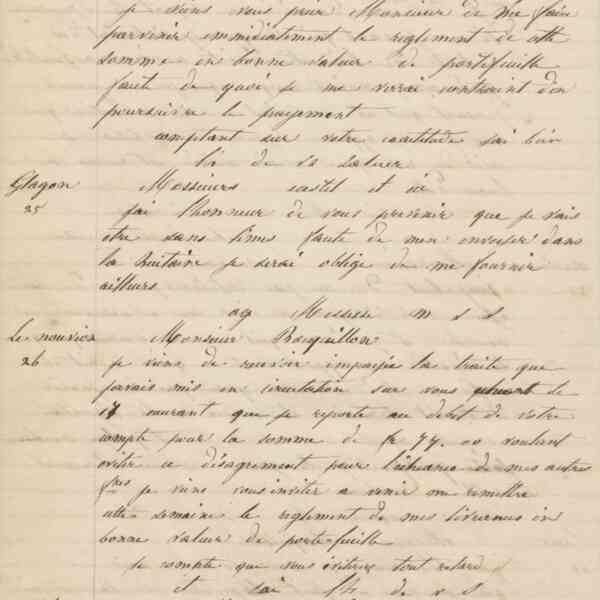 je viens vous prier Monsieur de me faire
parvenir immédiatement le reglement de cette
somme en bonne valeur de portefeuille
faute de quoi je me verrai contraint d'en
poursuivre le payement
comptant sur votre exactitude j'ai bien
de vs saluer
Glageon Messieurs castel et cie
25 j'ai l'honneur de vous prevenir que je vais
etre sans limes faute de men envoyer dans
la huitaine je serai obligé de me fournir
ailleurs
ag Mess m s s
Le nouvion Monsieur Roquillon
26 je viens de recevoir impayée la traite que
j'avais mis en circulation sur vous le
17 courant que je reporte au debit de votre
compte pour la somme de fr 77. 00 voulant
eviter ce désagrement pour l'échéance de mes autres
fres je viens vous inviter a venir me remettre
cette semaine le reglement de mes livraisons en
bonne valeur de porte-feuille
Je compte que vous éviterez tout retard
et j'ai l'h de v S